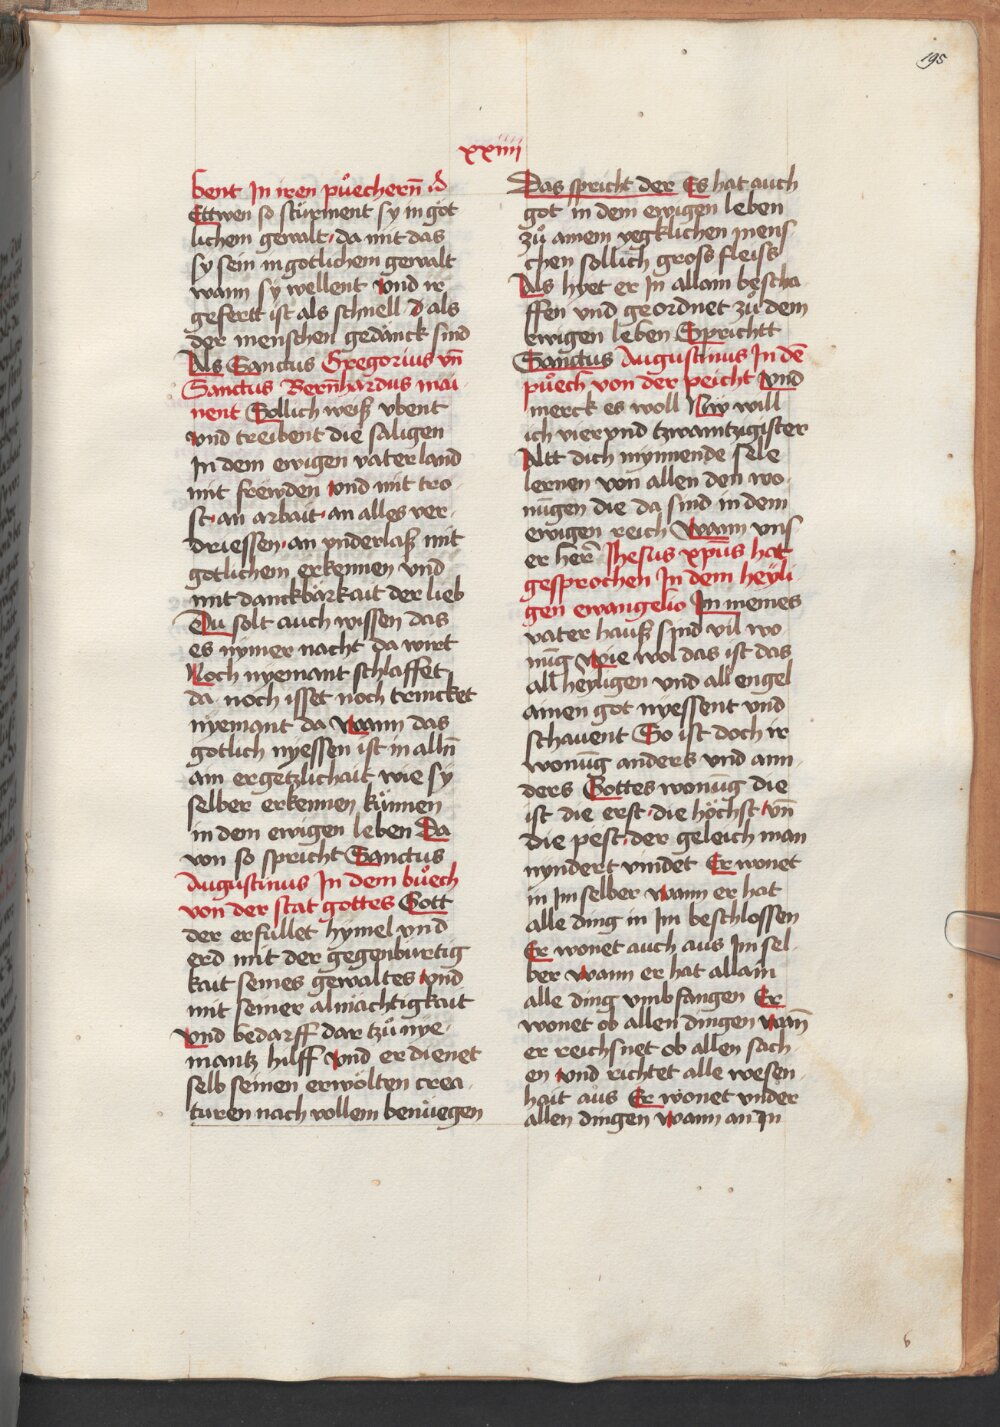 195
xxiiii
bent In iren püechern̄ ·S·
Ettwen so stürment sy in göt
lichem gewalt · da mit das
sy sein in gotlichem gewalt
wann sy wellent Vnd ir
gefertt ist als schnell · als
der menschen gedänck sind
Als Sanctus Gregorius vn̄
Sanctus Bern̄hardus mai
nent Sollich weiß vbent
vnd treibent die säligen
In dem ewigen vater land
mit frewden vnd mit tro
st · an arbait · an alles ver
driessen · an vnderlaß mit
gotlichem erkennen vnd
mit danckbärkait der lieb
Du solt auch wissen das
es nymer nacht da wirt
Noch nyemant schlaffet
da noch isset noch trincket
nyemant da wann das
gotlich nyessen ist in alln̄
ain ergetzlichait wie sy
selber erkennen künnen
in dem ewigen leben Da
von so spricht Sanctus
Augustinus In dem büech
von der stat gottes Gott
der erfüllet hymel vnd
erd mit der gegenbürtig
kait seines gewaltes vnd
mit seiner almächtigkait
Vnd bedarff dar tzů nye
mantz hilff Vnd er dienet
selb seinen erwölten crea
turen nach vollem benüegen
Das spricht der Es hat auch
got in dem ewigen leben
zů ainem yegklichen mens
chen sollich gross fleiss
Als hyet er In allain bescha
ffen vnd geordnet zů dem
ewigen leben Sprichtt
Sanctus Augustinus In dē
püech von der peicht Vnd
merck es woll Nw will
ich vier vnd tzwaintzigister
Altt dich mynnende sele
lernen von allen den wo
nūgen die da sind in dem
ewigen reich Wann vns
er herr̄ Jhesus xp̄us hat
gesprochen In dem heyli
gen ewangelio In meines
vater hauß sind vil wo
nūg Wie wol das ist das
all heyligen vnd all engel
ainen got nyessent vnd
schauent So ist doch ir
wonūg anders vnd ann
ders Gottes wonūg die
ist die erst · die höchst · vn̄
die pest · der geleich man
nyndert vindet Er wonet
in Im selber wann er hat
alle ding in Im beschlossen
Er wonet auch aus Im sel
ber wann er hat allain
alle ding vmbfangen Er
wonet ob allen dingen wan̄
er reichsnet ob allen sach
en vnd richtet alle wesen
hait aus Er wonet vnder
allen dingen wann an In
6